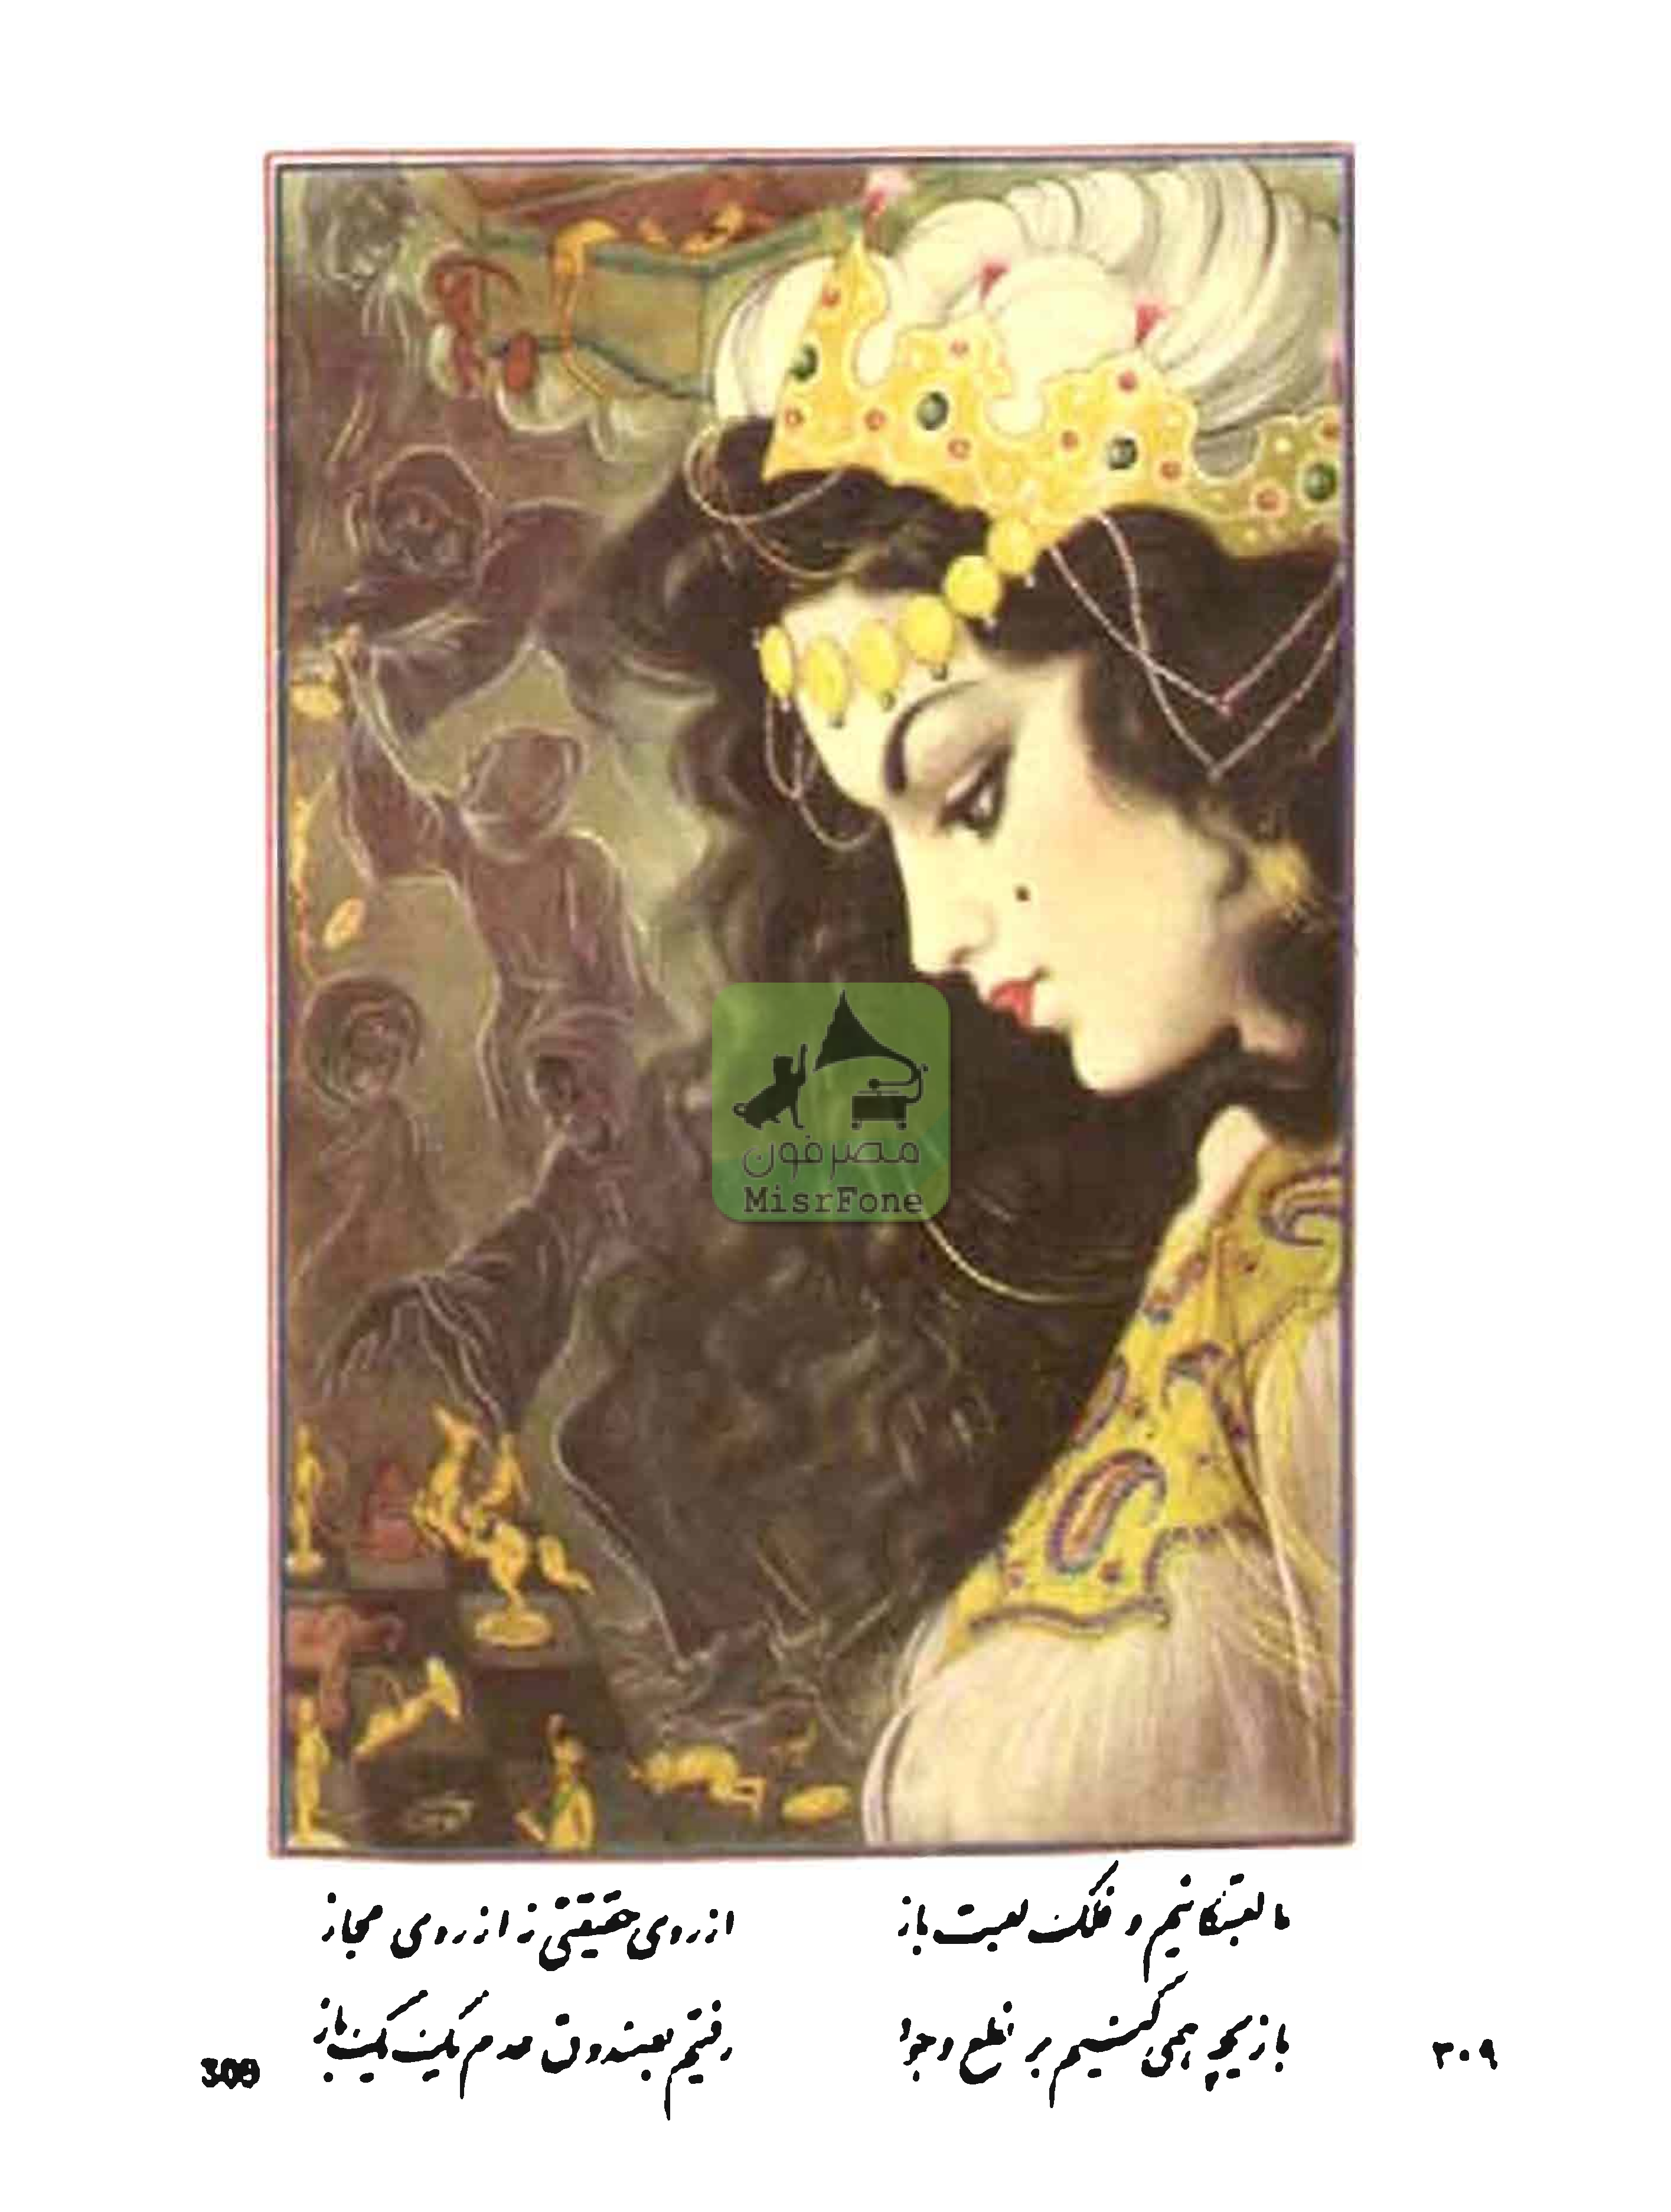 مصرفون
MisrFone
ما لعبتکانیم و فلک لعبت باز
از روی حقیقتی نه از روی مجاز
بازیچه همی کنیم بر نطع وجود
رفتیم بصندوق عدم یک یک باز
۳۰۹
309